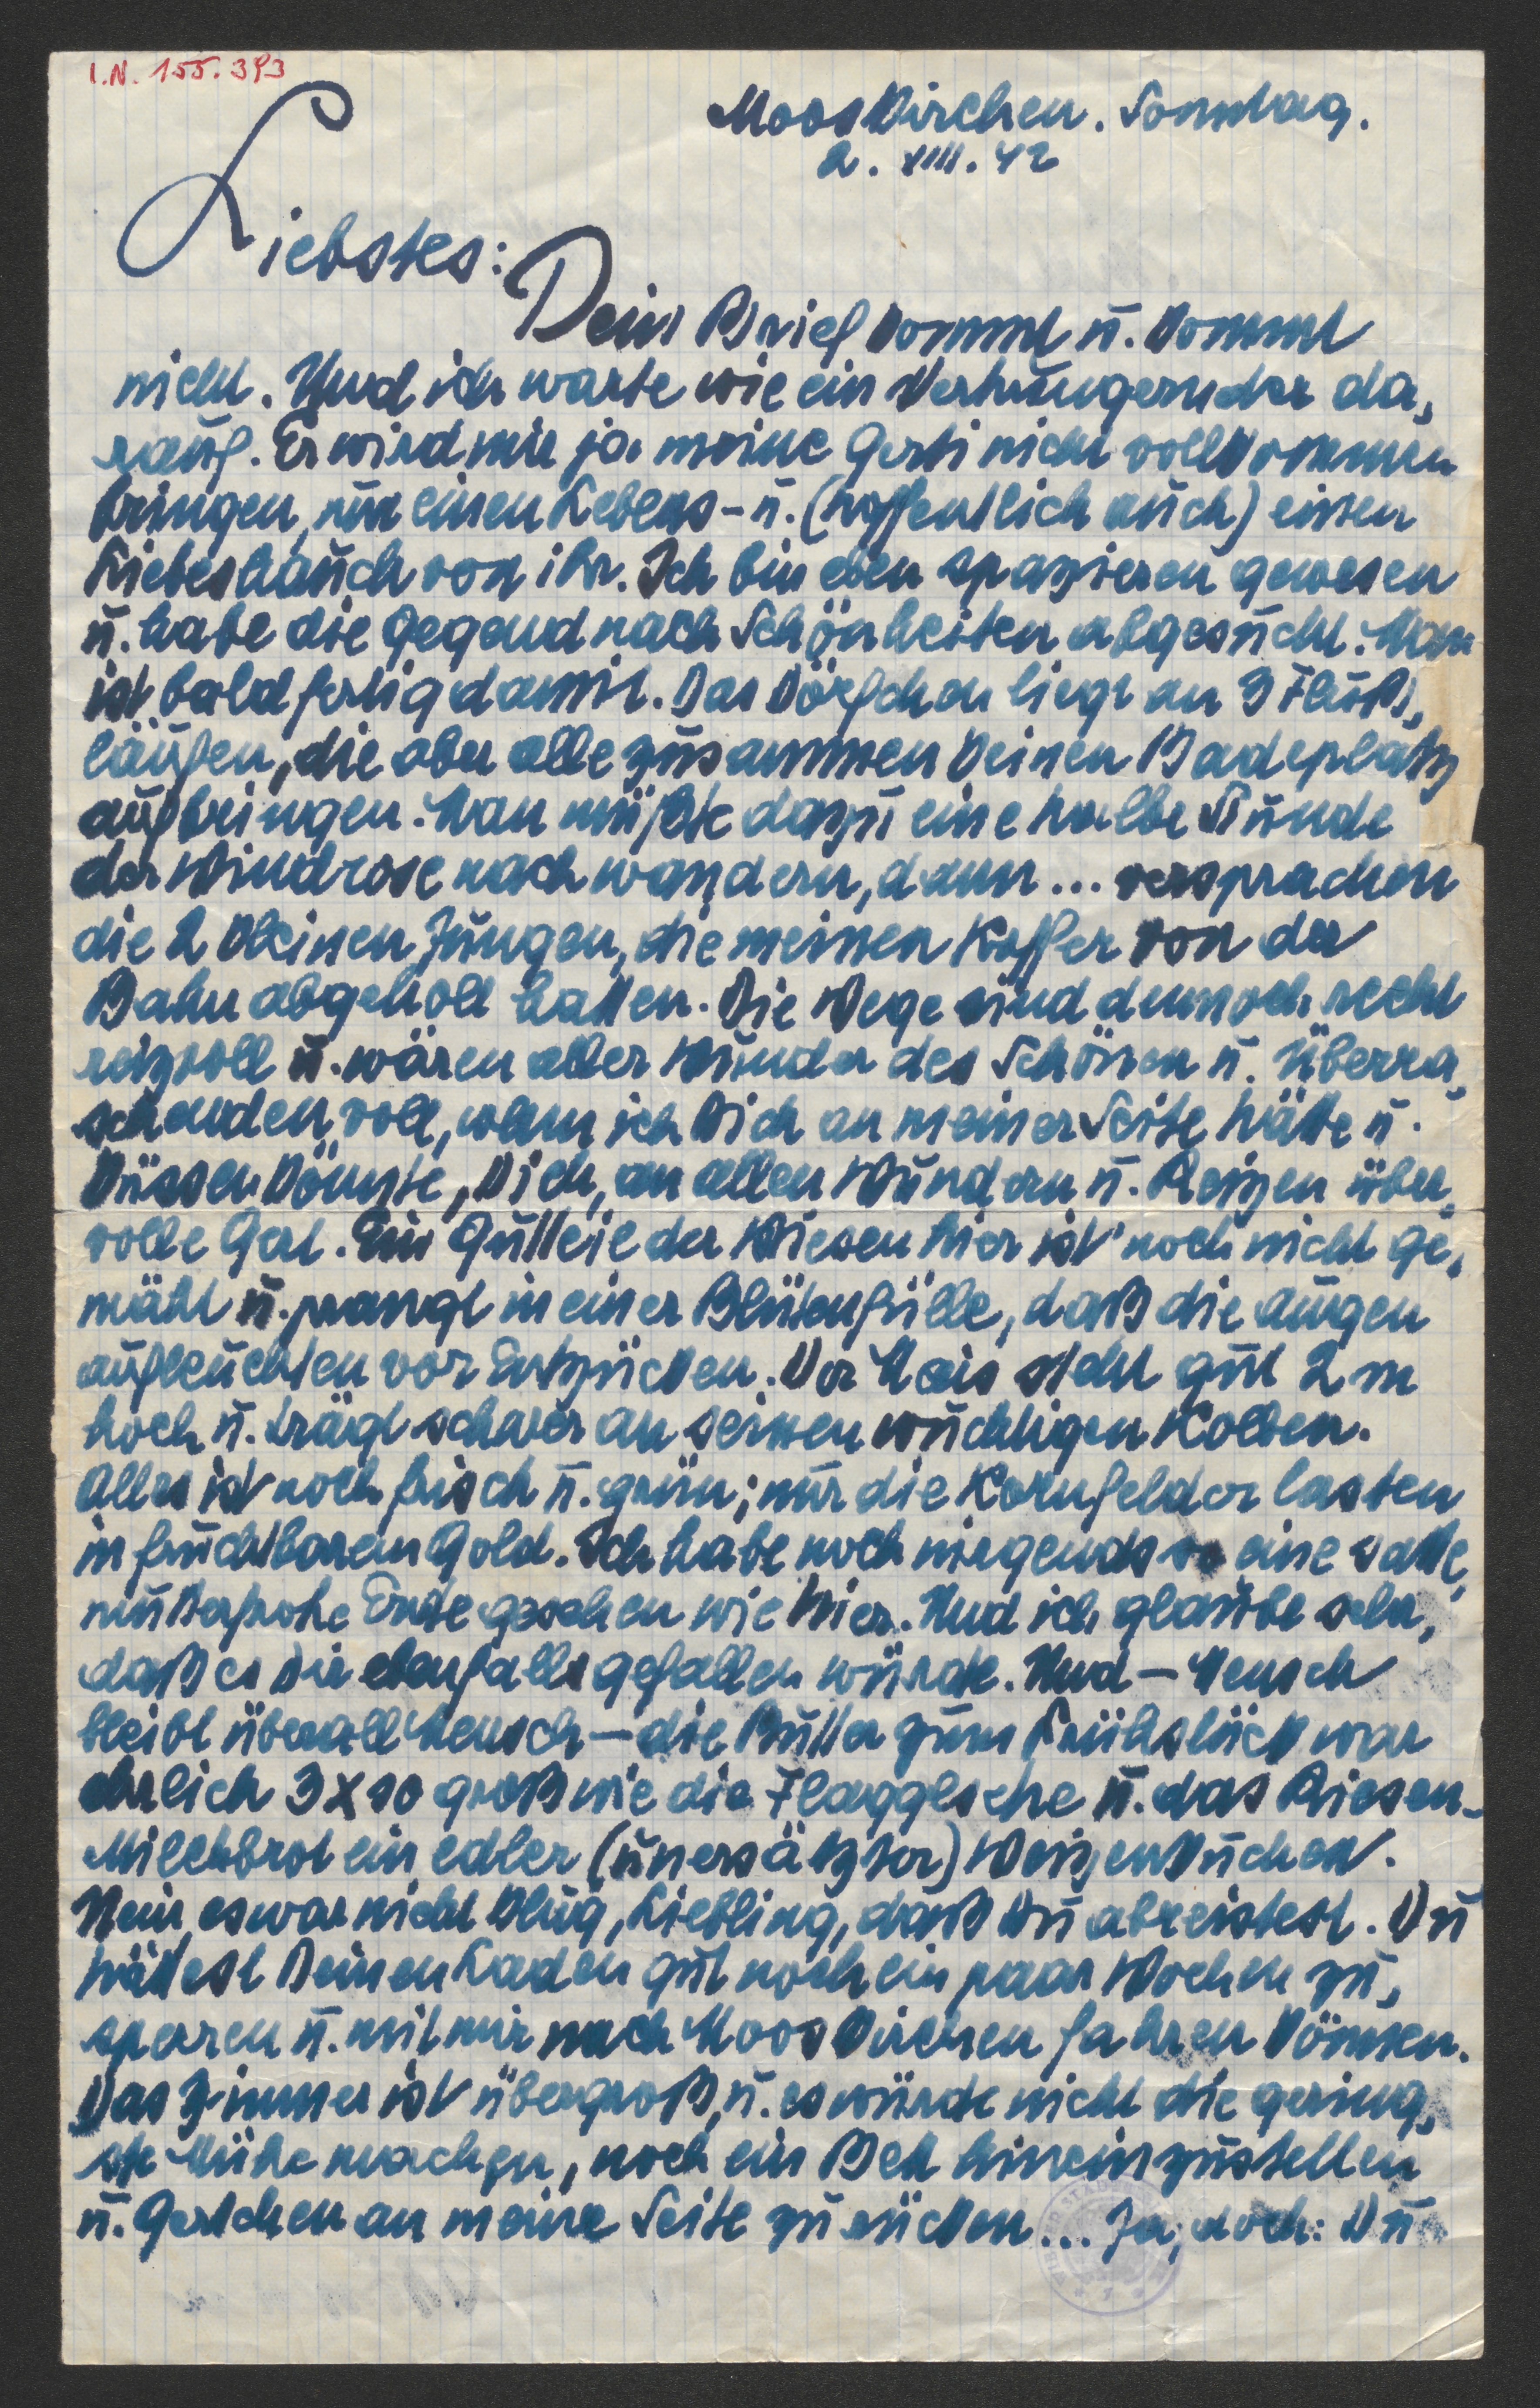 I.N. 155.393
Mooskirchen. Sonntag.
2. VIII. 42
Liebstes:
Dein Brief kommt u. kommt
nicht. Und ich warte wie ein Verhungernder da,
rauf. Er wird mir ja meine Gerti nicht vollkommen
bringen, nur einen Lebens- u. (hoffentlich auch) einen
Liebeshauch von ihr. Ich bin eben spazieren gewesen
u. habe die Gegend nach Schönheiten abgesucht. Man
ist bald fertig damit. Das Dörfchen liegt an 3 Fluß,
läufen, die aber alle zusammen keinen Badeplatz
aufbringen. Man müßte dazu eine halbe Stunde
der Windrose nach wandern, dann... versprachen
die 2 kleinen Jungen, die meinen Koffer von der
Bahn abgeholt hatten. Die Wege sind dennoch recht
reizvoll u. wären aller Wunder des Schönen u. Überra,
schenden voll, wenn ich Dich an meiner Seite hätte u.
küssen könnte, Dich, an allen Wundern u. Reizen über,
volle Gert. Ein Gutteil der Wiesen hier ist noch nicht ge,
mäht u. prangt in einer Blütenfülle, daß die Augen
aufleuchten vor Entzücken. Der Mais steht gut 2 m
hoch u. trägt schwer an seinen wuchtigen Kolben.
Alles ist noch frisch u. grün; nur die Kornfelder lasten
in fruchtbarem Gold. Ich habe noch nirgends so eine satte,
mutterfrohe Ernte gesehen wie hier. Und ich glaube sehr,
daß es Dir ebenfalls gefallen würde. Und – Mensch
bleibt überall Mensch – die Butter zum Frühstück war
ehrlich 3 x so groß wie die und das Riesen-
Milchbrot ein edler (unersätzter) Weizenkuchen.
Nein, es war nicht klug, Liebling, daß Du abreistest. Du
hättest Deinen Laden gut noch ein paar Wochen zu,
sperren u. mit mir nach Mooskirchen fahren können.
Das Zimmer ist übergroß, u. es würde nicht die gering,
ste Mühe machen, noch ein Bett hineinzustellen
u. Gertchen an meine Seite zu rücken... Ja, doch: Du